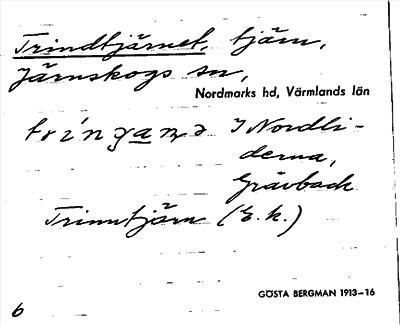 Trindtjärnet, tjärn,
Järnskogs sn,
Nordmarks hd, Värmlands län
I Nordli-
derna,
Grävback
Trinntjärn (E.k.)
GÖSTA BERGMAN 1913–16
6